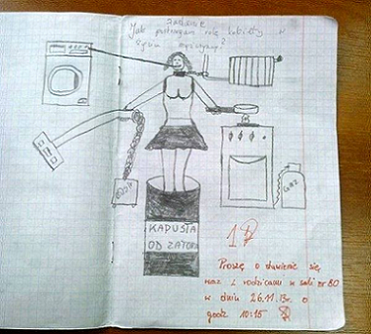 Zadanie
Jak postrzegam rolę kobiety w
życiu mężczyzny?
GAZ
KAPUSTA
OD
1
Proszę o stawienie się
wraz z rodzicami w sali nr 80
w dniu 26.11.13r. o
godz 10:15